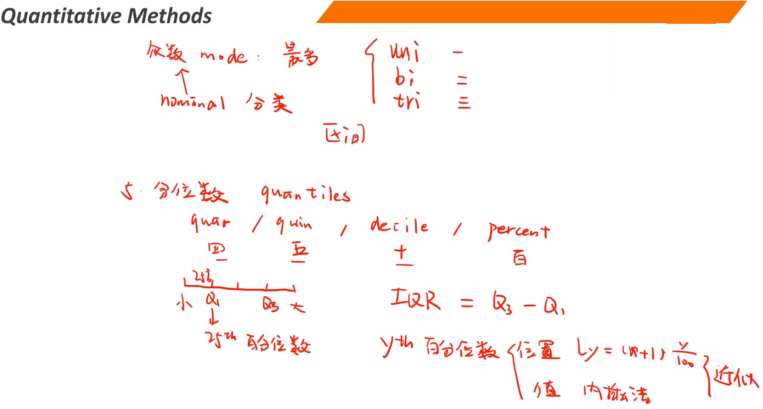 Quantitative Methods
众数 mode: 最多 uni 一
bi 二
nominal 分类 tri 三
区间
5. 分位数 quantiles
quar / quin , decile / percent
四 五 十 百
25%
小 Q₁ Q₃ 大 IQR = Q₃ - Q₁
25th 百分位数 yth 百分位数 位置 Ly = (n+1) y/100 近似
值 内插法